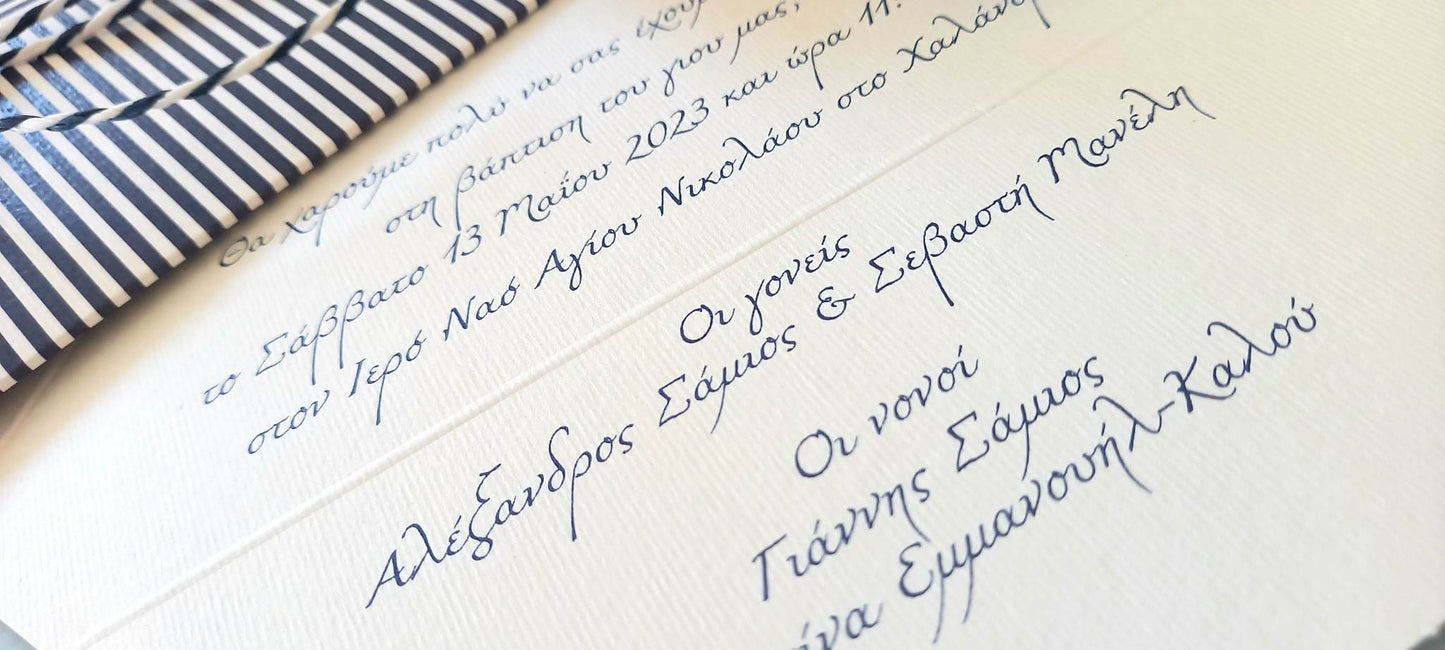 Θα χαρούμε πολύ να σας
στη βάπτιση του γιου μας,
το Σάββατο 13 Μαΐου 2023 και ώρα 11.
στον Ιερό Ναό Αγίου Νικολάου στο
Οι γονείς
Αλέξανδρος Σάμιος & Σεβαστή Μανέλη
Οι νονοί
Γιάννης Σάμιος
Εμμανουήλ-Καλού